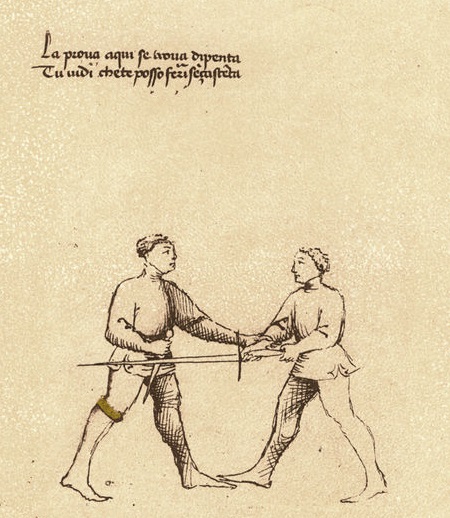 La prova aqui se trova dipenta
Tu vidi che te posso ferir seça stēta